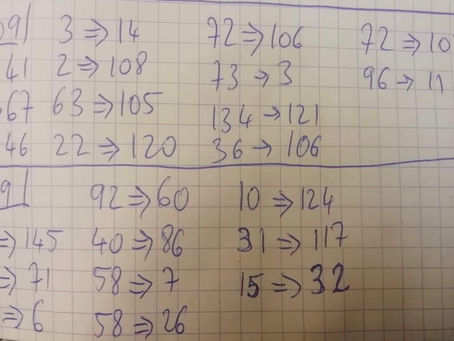 09| 3 ⇒ 14 72 ⇒ 106 72 ⇒ 10
41 2 ⇒ 108 73 → 3 96 → 11
67 63 ⇒ 105 134 → 121
46 22 ⇒ 120 36 → 106
9| 92 ⇒ 60 10 ⇒ 124
⇒ 145 40 ⇒ 86 31 ⇒ 117
⇒ 71 58 ⇒ 7 15 ⇒ 32
⇒ 6 58 ⇒ 26